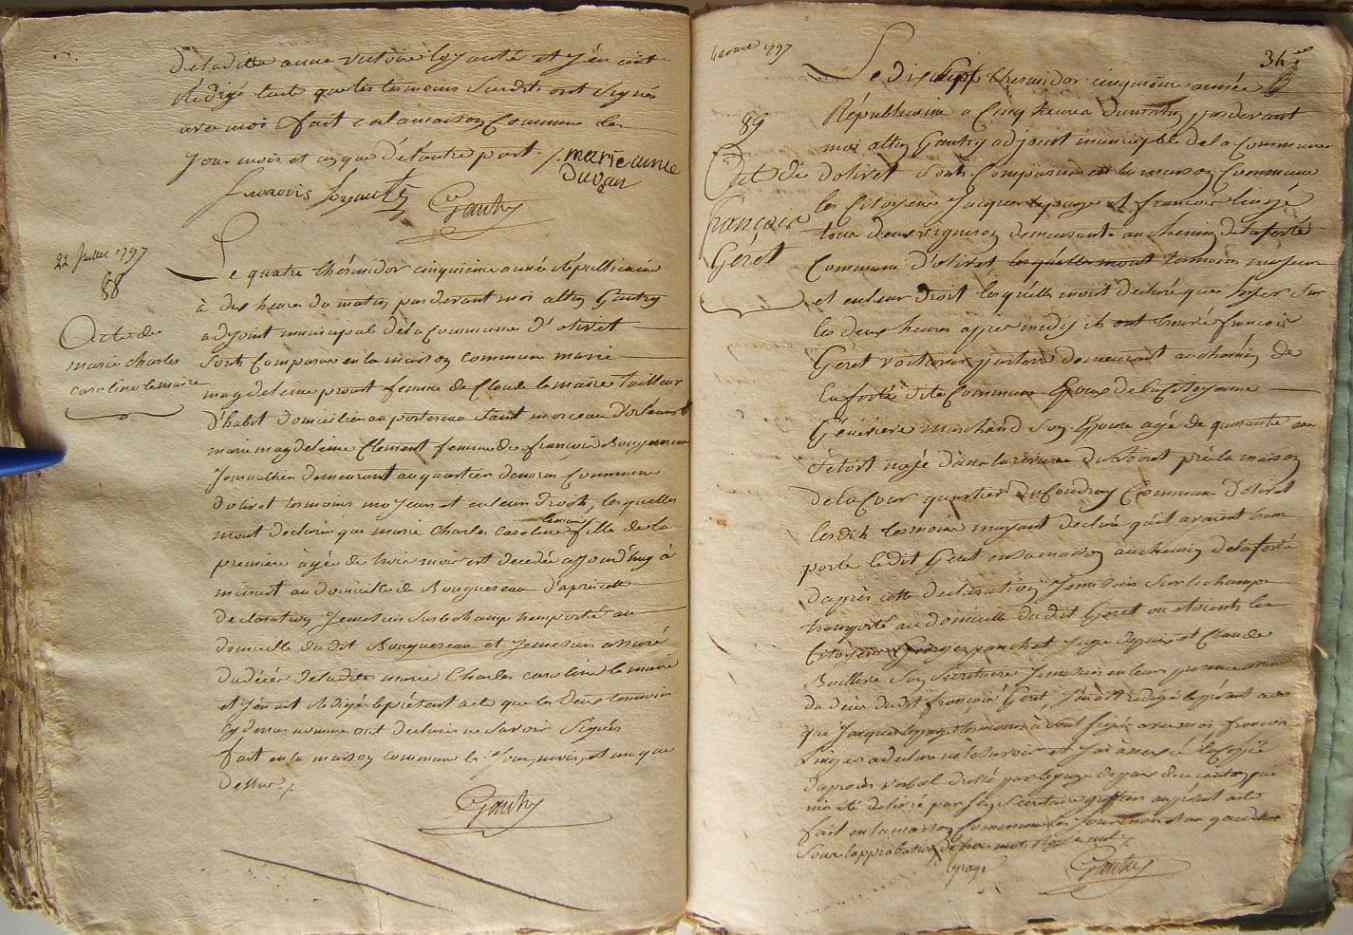 de ladite anne victoire Loyauté et j'en ait
Rédigé lacte que les temoins Susdits ont Signés
avec moi fait en la maison Commune les
Jour mois et an que de l'autre part ./. marie anne
Duvan
Gautry
22 Juillet 1797
88
Acte de
marie charles
caroline lemaire
Le quatre thermidor cinquieme année Républicaine
à dix heures du matin par devant moi altin Gautry
adjoint municipal de la Commune d'olivet
Sont Comparue en la maison commune marie
magdeleine prout femme de Cloude lemaire Tailleur
d'habit domicilié au portereau Saint morceau d'orleans &
marie magdeleine Clement femme de françois Bouguereau
Journallier demeurant au quartier Commune
d'olivet temoins majeurs et en leur droit, lesquelles
mont declaré que marie Charles caroline lemaire fille de la
premiere agée de trois mois est decedée aujourd'huy à
minuit au domicille de Bouguereau d'apres cette
declaration Je me suis Sur le champ transporté au
domicille du dit Bouguereau et Je me suis assuré
du décès de ladite marie Charles caroline le maire
et J'en ait Redigé le présent acte que les Deux temoins
cy dessus nommé ont declarés ne Savoir Signés
fait en la maison commune les Jour, mois, et an que
dessus ./.
Gautry
1797
34
89
Acte de
françois
Geret
Le dix Sept thermidor cinquieme année
Républicaine a Cinq heures du matin par devant
moi altin Gautry adjoint municipal de la Commune
d'olivet Sont Comparus en la maison Commune
les Citoyens Jacques lepage et francois
tous deux vignerons demeurants au chemin de la ferté
Commune d'olivet lesquelle mont temoins majeurs
et en leur droit lesquelle mont declaré que hyer Sur
les deux heures apres midy ils ont trouvé francois
Geret voiturier par terre demeurant au chemin de
la ferté dite Commune Epoux de la Citoyenne
marchand Son Epouse agé de quarante ans
S'etoit noyé dans la riviere du Loiret près la maison
de la Cour quartier du Coudray Commune d'olivet
lesdits temoins mayant declaré qu'il avaient trans
porté ledit Geret en sa maison au chemin de la ferté
d'après cette declaration Je me suis Sur le champs
transporté au domicille du dit Geret ou etoients les
Citoyens Juge de paix et Claude
Son Secretaire Je me suis en leur presence assuré
du déces du dit francois Geret, J'en ait redigé le présent acte
que Jacques lepage temoins à dont Signé avec moi francois
a declaré ne le Savoir et J'ai annexé à
procès verbal dressé par le juge de paix du canton que
ma été delivré par Son Secretaire greffier au présent acte
fait en la maison Commune les Jour mois et an que dessus
Sous l'approbation de trois mots Rayé nul ./.
lepage
Gautry